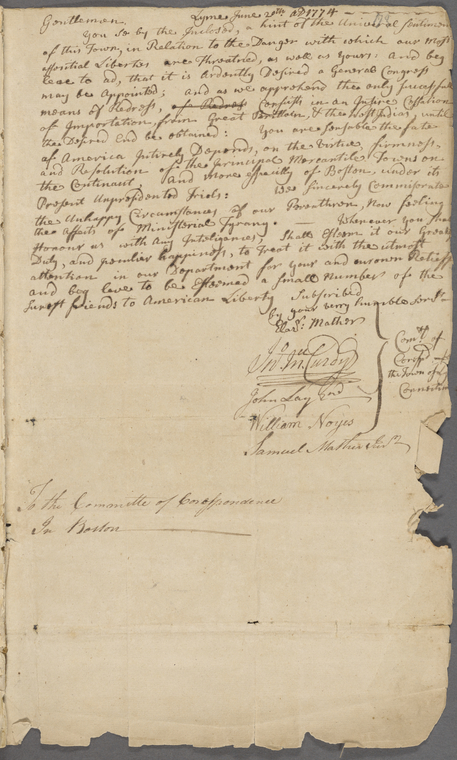 Gentlemen Lyme June 20th AD 1774
You See by the Inclosed, a hint of the Universal Sentiment
of this Town, in Relation to the Danger with which our Most
essential Liberties are Threatned, as well as Yours: And beg
leave to ad, that it is Ardently Desired a General Congress
may be Appointed; And as we apprehend the only Successfull
means of Redress, of Redress Consists in an Intire Cessation
of Importation, from Great Brittain, & the West Indias, until
the Desired End be obtained: You are sensable the fate
of America Intirely Depends, on the Virtue, firmness,
and Resolution of the principal Mercantile Towns on
the Continant, And more especially of Boston, under its
Present Unpresidented Trials: Wee Sincerely Commiserate
the Unhappy Circumstances of our Breathren, Now feeling
the Affects of Ministerial Tyrany. Whenever you Shall
Honour us with Any Inteligence, Shall Esteem it our Greatest
Duty, and peculiar happiness, to Treat it with the utmost
attention in our Department for your and our own Relief
and beg leave to be Esteemed a Small Number of the
Surest friends to American Liberty Subscribed
by your very humble Servts
Eleazr Mather
Jno McCurdy
John Lay 2nd
William Noyes
Samuel Mather Junr
Comtt of
Corresp
the Town of
Connecticut
To the Committe of Corespondence
In Boston